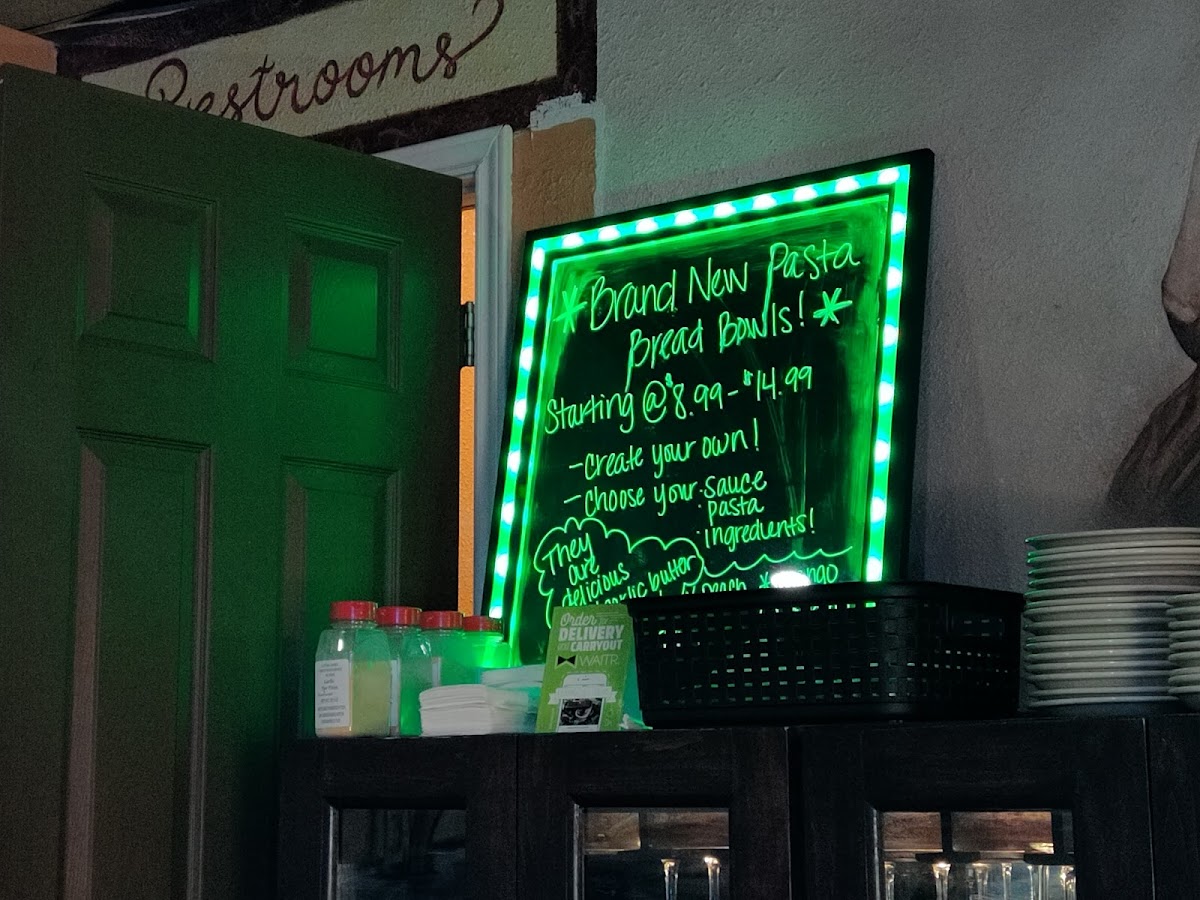 Restrooms
*Brand New Pasta
Bread Bowls!*
Starting @ $8.99 - $14.99
- Create your own!
- Choose your · sauce
· pasta
· ingredients!
They
are
delicious
garlic butter
Peach
Order for
DELIVERY
and CARRYOUT
WAITR